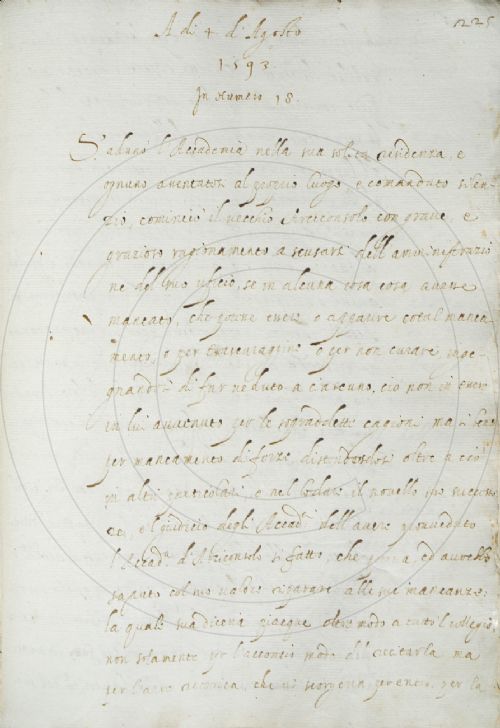 225
A dì 4 d'Agosto
1593.
In numero 18.
S'adunò l'Accademia nella sua solita residenza, e
ognuno assentatosi al proprio luogo, e comandato silen
zio, cominciò il vecchio Arciconsolo con grave, e
grazioso ragionamento a scusarsi dell'amministrazio
ne del suo ufizio, se in alcuna cosa cosa avesse
mancato, che potne essere o apparire cotal manca
mento, o per o per non curare, inge
gnandosi di far veduto a ciascuno, ciò non essere
in lui avvenuto per le sopraddette cagioni, ma sì bene
per mancamento di forze, distendendosi oltre a ciò
in altri particolari, e nel lodare il novello suo successo
re, e 'l giudicio degli Accad. nell'avere provveduto
l'Accad. d'Arciconsolo sì fatto, che ed avrebbe
saputo col suo valore riparare alle sue mancanze:
la quale sua diceria piacque oltre modo a tutto 'l collegio
non solamente per l'acconcio modo del recitarla ma
per l'arte rettorica, che si scorgeva per entro, per la